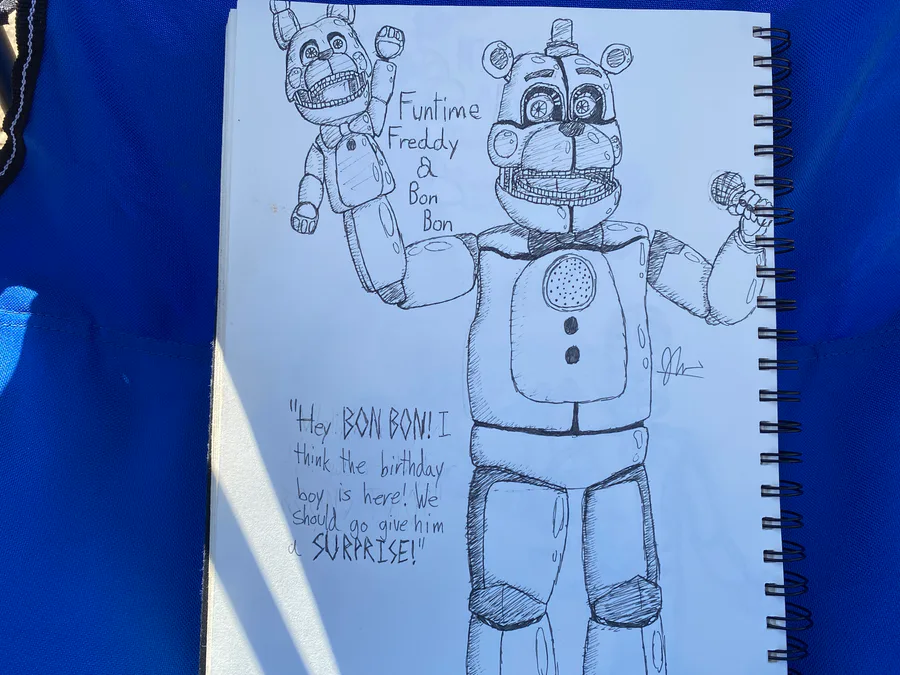 Funtime
Freddy
&
Bon
Bon
"Hey BON BON! I
think the birthday
boy is here! We
should go give him
a SURPRISE!"